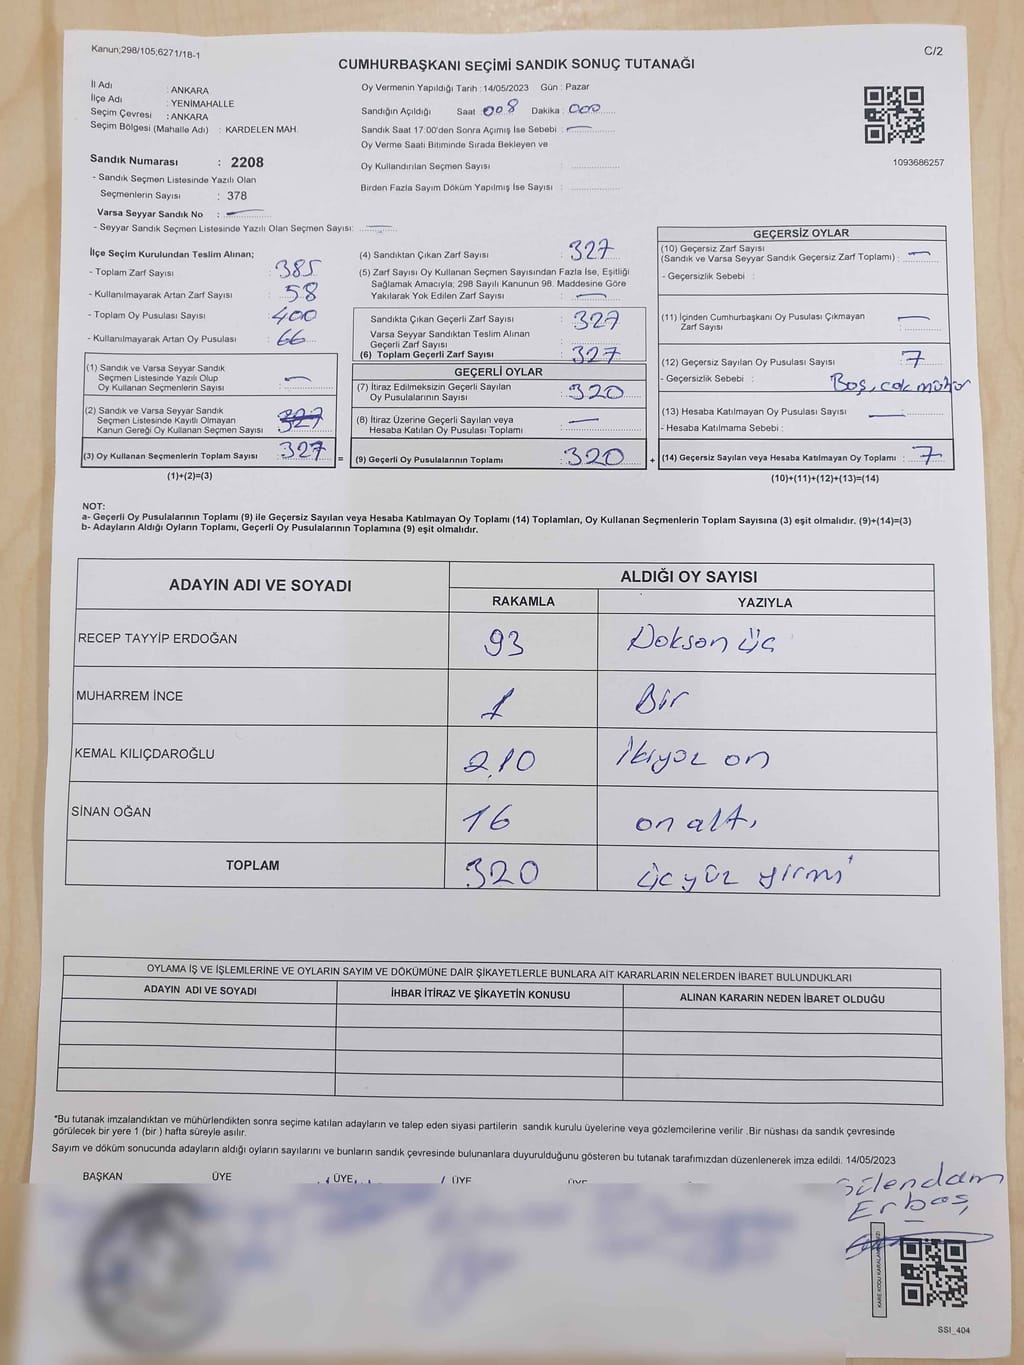 Kanun;298/105;6271/18-1
C/2
CUMHURBAŞKANI SEÇİMİ SANDIK SONUÇ TUTANAĞI
İl Adı : ANKARA
İlçe Adı : YENİMAHALLE
Seçim Çevresi : ANKARA
Seçim Bölgesi (Mahalle Adı) : KARDELEN MAH.
Sandık Numarası : 2208
- Sandık Seçmen Listesinde Yazılı Olan
Seçmenlerin Sayısı : 378
Varsa Seyyar Sandık No :
- Seyyar Sandık Seçmen Listesinde Yazılı Olan Seçmen Sayısı:
Oy Vermenin Yapıldığı Tarih : 14/05/2023 Gün : Pazar
Sandığın Açıldığı Saat 008 Dakika : 000
Sandık Saat 17:00'den Sonra Açımış İse Sebebi :
Oy Verme Saati Bitiminde Sırada Bekleyen ve
Oy Kullandırılan Seçmen Sayısı :
Birden Fazla Sayım Döküm Yapılmış İse Sayısı :
1093686257
İlçe Seçim Kurulundan Teslim Alınan;
- Toplam Zarf Sayısı : 385
- Kullanılmayarak Artan Zarf Sayısı : 58
- Toplam Oy Pusulası Sayısı : 400
- Kullanılmayarak Artan Oy Pusulası : 66
(1) Sandık ve Varsa Seyyar Sandık
Seçmen Listesinde Yazılı Olup
Oy Kullanan Seçmenlerin Sayısı :
(2) Sandık ve Varsa Seyyar Sandık
Seçmen Listesinde Kayıtlı Olmayan
Kanun Gereği Oy Kullanan Seçmen Sayısı : 327
(3) Oy Kullanan Seçmenlerin Toplam Sayısı : 327
(1)+(2)=(3)
(4) Sandıktan Çıkan Zarf Sayısı : 327
(5) Zarf Sayısı Oy Kullanan Seçmen Sayısından Fazla İse, Eşitliği
Sağlamak Amacıyla; 298 Sayılı Kanunun 98. Maddesine Göre
Yakılarak Yok Edilen Zarf Sayısı :
Sandıkta Çıkan Geçerli Zarf Sayısı : 327
Varsa Seyyar Sandıktan Teslim Alınan
Geçerli Zarf Sayısı :
(6) Toplam Geçerli Zarf Sayısı : 327
GEÇERLİ OYLAR
(7) İtiraz Edilmeksizin Geçerli Sayılan
Oy Pusulalarının Sayısı : 320
(8) İtiraz Üzerine Geçerli Sayılan veya
Hesaba Katılan Oy Pusulası Toplamı :
= (9) Geçerli Oy Pusulalarının Toplamı : 320 +
GEÇERSİZ OYLAR
(10) Geçersiz Zarf Sayısı
(Sandık ve Varsa Seyyar Sandık Geçersiz Zarf Toplamı) :
- Geçersizlik Sebebi :
(11) İçinden Cumhurbaşkanı Oy Pusulası Çıkmayan
Zarf Sayısı :
(12) Geçersiz Sayılan Oy Pusulası Sayısı : 7
- Geçersizlik Sebebi : Boş, çok mühür
(13) Hesaba Katılmayan Oy Pusulası Sayısı :
- Hesaba Katılmama Sebebi :
(14) Geçersiz Sayılan veya Hesaba Katılmayan Oy Toplamı : 7
(10)+(11)+(12)+(13)=(14)
NOT:
a- Geçerli Oy Pusulalarının Toplamı (9) ile Geçersiz Sayılan veya Hesaba Katılmayan Oy Toplamı (14) Toplamları, Oy Kullanan Seçmenlerin Toplam Sayısına (3) eşit olmalıdır. (9)+(14)=(3)
b- Adayların Aldığı Oyların Toplamı, Geçerli Oy Pusulalarının Toplamına (9) eşit olmalıdır.
ADAYIN ADI VE SOYADI
ALDIĞI OY SAYISI
RAKAMLA YAZIYLA
RECEP TAYYİP ERDOĞAN 93 Doksan üç
MUHARREM İNCE 1 Bir
KEMAL KILIÇDAROĞLU 210 İkiyüz on
SİNAN OĞAN 16 on altı
TOPLAM 320 üç yüz yirmi
OYLAMA İŞ VE İŞLEMLERİNE VE OYLARIN SAYIM VE DÖKÜMÜNE DAİR ŞİKAYETLERLE BUNLARA AİT KARARLARIN NELERDEN İBARET BULUNDUKLARI
ADAYIN ADI VE SOYADI İHBAR İTİRAZ VE ŞİKAYETİN KONUSU ALINAN KARARIN NEDEN İBARET OLDUĞU
*Bu tutanak imzalandıktan ve mühürlendikten sonra seçime katılan adayların ve talep eden siyasi partilerin sandık kurulu üyelerine veya gözlemcilerine verilir .Bir nüshası da sandık çevresinde
görülecek bir yere 1 (bir ) hafta süreyle asılır.
Sayım ve döküm sonucunda adayların aldığı oyların sayılarını ve bunların sandık çevresinde bulunanlara duyurulduğunu gösteren bu tutanak tarafımızdan düzenlenerek imza edildi. 14/05/2023
BAŞKAN ÜYE ÜYE ÜYE ÜYE
Gülendam
Erbaş
KARE KODU KARALAMAYINIZ!
SSI_404